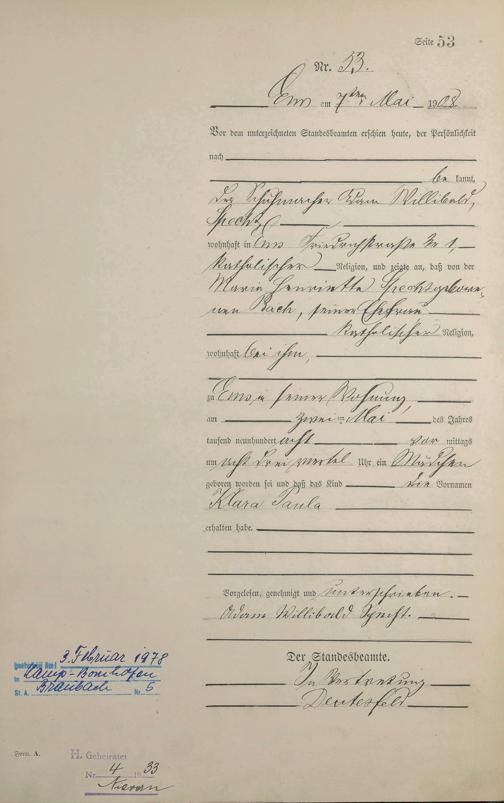 Seite 53
Nr. 53.
Ems am 7ten Mai 1908
Vor dem unterzeichneten Standesbeamten erschien heute, der Persönlichkeit
nach
be kannt,
der Schuhmacher Adam Willibald
Specht
wohnhaft in Ems Friedrichstraße No 1,
katholischer Religion, und zeigte an, daß von der
Maria Henriette Specht gebore-
nen Bach, seiner Ehefrau
katholischer Religion,
wohnhaft bei ihm,
zu Ems in seiner Wohnung
am zwei Mai des Jahres
tausend neunhundert acht vor mittags
um acht drei viertel Uhr ein Mädchen
geboren worden sei und daß das Kind die Vornamen
Klara Paula
erhalten habe.
Vorgelesen, genehmigt und unterschrieben.
Adam Willibald Specht.
Der Standesbeamte.
In Vertretung
3. Februar 1978
in Kamp-Bornhofen
Braubach
St. A. Nr. 5
Form. A.
H. Geheiratet
Nr. 4 1933
Nievern